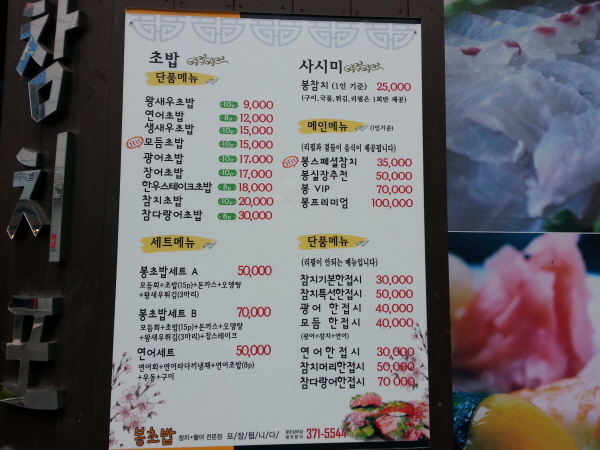 참치포
초밥
단품메뉴
왕새우초밥 10p 9,000
연어초밥 8p 12,000
생새우초밥 10p 15,000
모듬초밥 10p 15,000
광어초밥 10p 17,000
장어초밥 10p 17,000
한우스테이크초밥 8p 18,000
참치초밥 10p 20,000
참다랑어초밥 8p 30,000
세트메뉴
봉초밥세트 A 50,000
모듬회+초밥(15p)+돈까스+오뎅탕
+왕새우튀김(3마리)
봉초밥세트 B 70,000
모듬회+초밥(15p)+돈까스+오뎅탕
+왕새우튀김(3마리)+찹스테이크
연어세트 50,000
연어회+연어타다끼냉채+연어초밥(8p)
+우동+구이
사시미
봉참치 (1인 기준) 25,000
(구이,국물,튀김,리필은 1회만 제공)
메인메뉴 (1인기준)
(리필과 곁들이 음식이 제공됩니다)
봉스페셜참치 35,000
봉실장추천 50,000
봉 VIP 70,000
봉프리미엄 100,000
단품메뉴
(리필이 안되는 메뉴입니다)
참치기본한접시 30,000
참치특선한접시 50,000
광어 한접시 40,000
모듬 한접시 40,000
(광어+참치+연어)
연어한접시 30,000
참치머리한접시 50,000
참다랑어한접시 70 000
봉초밥 참치•활어 전문점 포/장/됩/니/다/ 371-5544